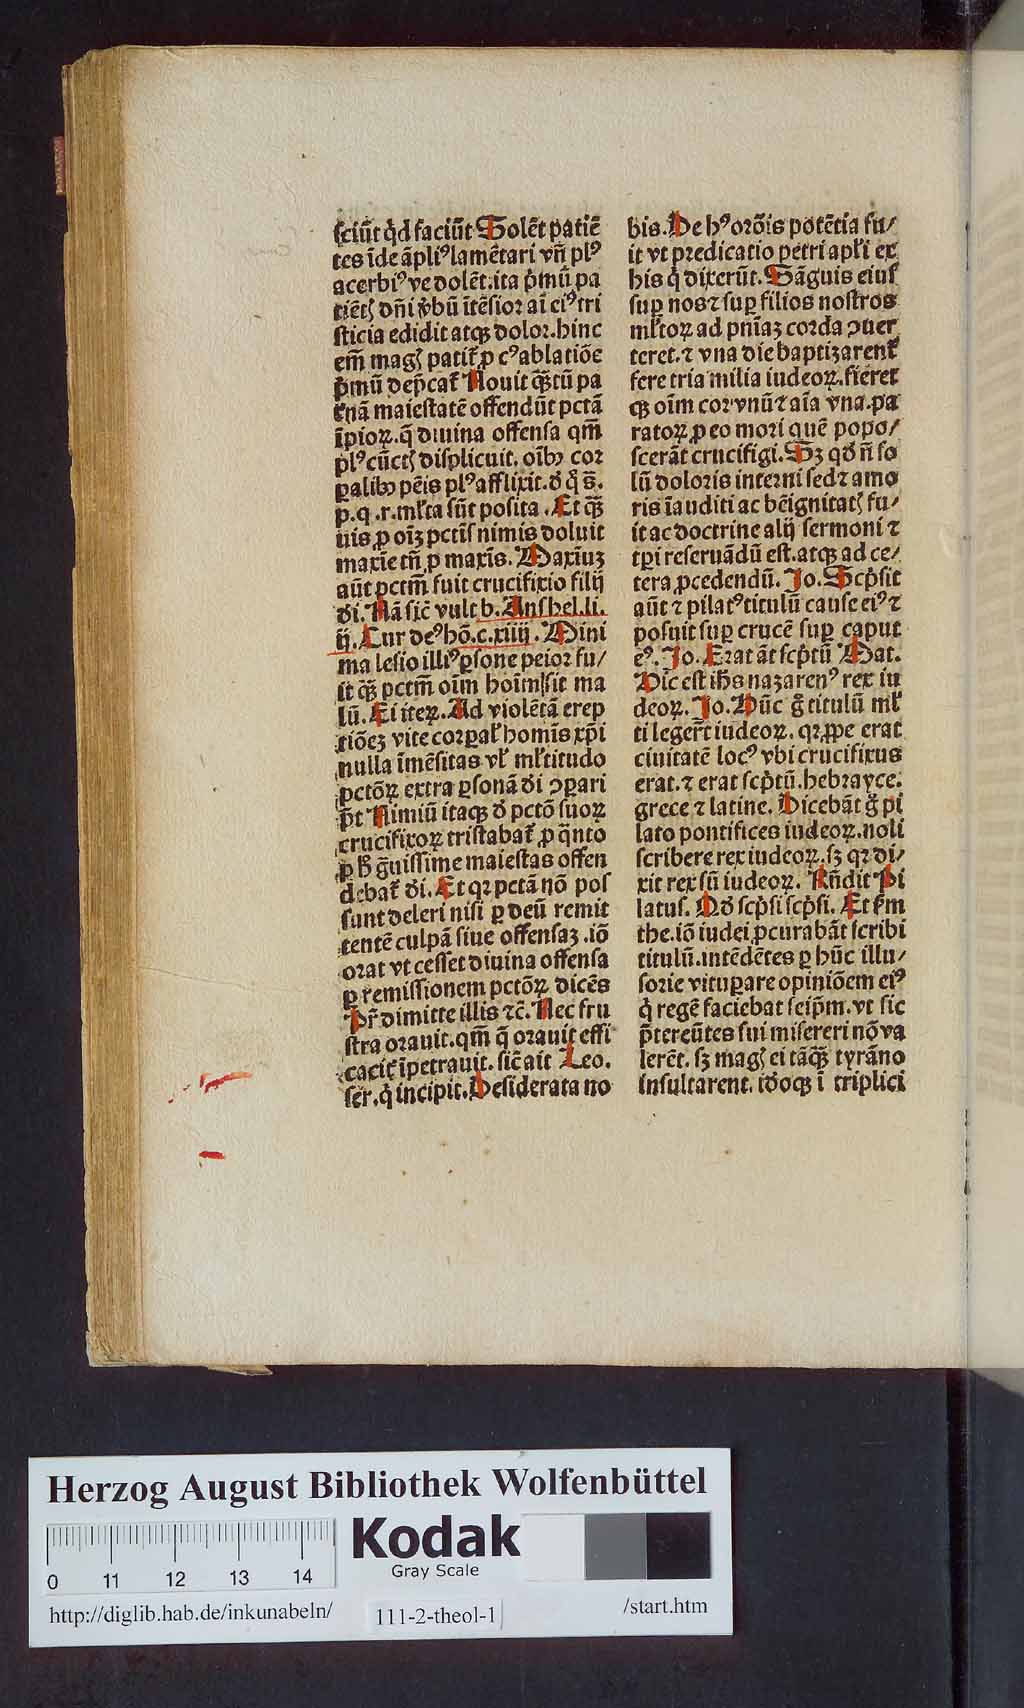 sciūt q̇d faciūt Solēt patiē
tes īde āpliꝰ lamētari vn̄ plꝰ
acerbiꝰ ve dolēt. ita p̄mū pa
tiētꝭ dn̄i v̄bū ītēsior aī eiꝰ tri
sticia edidit atqꝫ dolor. hinc
em̄ magꝭ patit᷑ ꝓ cꝰ ablatiōe
p̄mū dep̄cat᷑ Nouit q̄ꝫtū pa
t̄nā maiestatē offendūt pctā
īpioꝝ. q̄ diuina offensa qm̄
plꝰ cūctꝭ displicuit. oībꝫ cor
ꝑalibꝫ pēis plꝰ afflixit. d̄ q̊ s̄.
p. q. r. ml̄ta sūt posita. Et q̄ꝫ
uis ꝓ oīꝫ pctīs nimis doluit
maxīe tn̄ ꝓ maxīs. Maxīuꝫ
aūt pctm̄ fuit crucifixio filij
dī. Nā sic̄ vult b. Anshel. li.
ij. Cur deꝰ hō. c. xiiij. Mini
ma lesio illiꝰ ꝑsone peior fu/
it q̄ꝫ pctm̄ oīm hoīm sit ma
lū. Ei iteꝝ. Ad violētā erep
tiōeꝫ vite corꝑal᷑ homīs xp̄i
nulla īmēsitas vl᷑ ml᷑titudo
pctōꝝ extra ꝑsonā dī ꝯpari
p̄t Nimiū itaqꝫ d̄ pctō suoꝝ
crucifixoꝝ tristabat᷑ ꝓ q̄nto
ꝑ h̄ ḡuissime maiestas offen
debat᷑ dī. Et qꝛ pctā nō pos
sunt deleri nisi ꝑ deū remit
tentē culpā siue offensaꝫ. iō
orat vt cesset diuina offensa
ꝑ remissionem pctōꝝ dicēs
Pr̄ dimitte illis ⁊c̄. Nec fru
stra orauit. qm̄ q̄ orauit effi
cacit᷑ īpetrauit. sic̄ ait Leo.
ser̄. q̇ incipit. Desiderata no
bis. De hꝰ orōis potētia fu/
it vt predicatio petri apl᷑i ex
his q̇ dixerūt. Sāguis eiuˢ
suꝑ nos ⁊ suꝑ filios nostros
ml᷑toꝝ ad pn̄iaꝫ corda ꝯuer
teret. ⁊ vna die baptizarent᷑
fere tria milia iudeoꝝ. fieret
qꝫ oīm cor vnū ⁊ aīa vna. pa
ratoꝝ ꝓ eo mori quē popo/
scerāt crucifigi. Sꝫ qd̄ n̄ so
lū doloris interni sed ⁊ amo
ris īauditi ac bēignitatꝭ fu/
it ac doctrine alij sermoni ⁊
tꝑi reseruādū est. atqꝫ ad ce/
tera ꝓcedendū. Io. Scp̄sit
aūt ⁊ pilatꝰ titulū cause eiꝰ ⁊
posuit suꝑ crucē suꝑ caput
eꝰ. Io. Erat āt scp̄tū Mat.
Hic est ih̄s nazarenꝰ rex iu
deoꝝ. Io. Hūc g̊ titulū ml᷑
ti leger̄t iudeoꝝ. qꝛ ꝓpe erat
ciuitatē locꝰ vbi crucifixus
erat. ⁊ erat scp̄tū. hebrayce.
grece ⁊ latine. Dicebāt g̊ pi
lato pontifices iudeoꝝ. noli
scribere rex iudeoꝝ. sꝫ qꝛ di/
xit rex sū iudeoꝝ. Rn̄dit Pi
latus. Qd̄ scp̄si scp̄si. Et s̄m
the. iō iudei ꝓcurabāt scribi
titulū. intēdētes ꝑ hūc illu/
sorie vituꝑare opiniōem eiꝰ
q̇ regē faciebat seip̄m. vt sic
p̄tereūtes sui misereri nō va
lerēt. sꝫ magꝭ ei tāq̄ꝫ tyrāno
insultarent. idōqꝫ ī triplici
Herzog August Bibliothek Wolfenbüttel
0 11 12 13 14
Kodak
Gray Scale
http://diglib.hab.de/inkunabeln/
111-2-theol-1
/start.htm